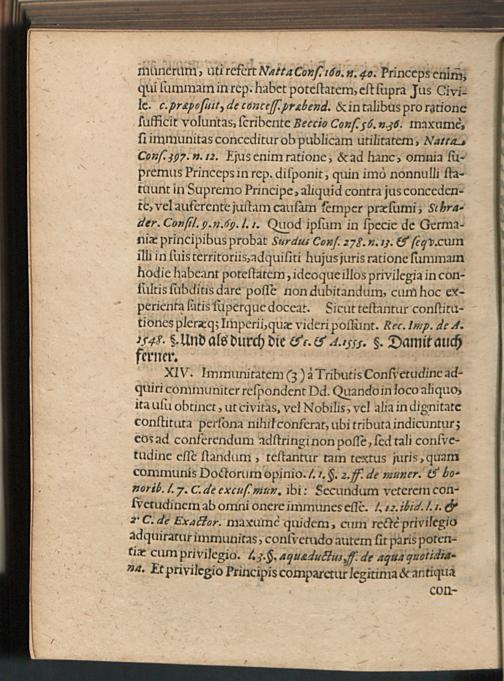 munerum, uti refert Natta Conſ. 160. n. 40. Princeps enim,
qui ſummam in rep. habet poteſtatem, eſt ſupra Jus Civi-
le. c. præpoſuit, de conceſſ. præbend. & in talibus pro ratione
ſufficit voluntas, ſcribente Beccio Conſ. 56. n. 36. maxumè,
ſi immunitas conceditur ob publicam utilitatem, Natta
Conſ. 397. n. 12. Ejus enim ratione, & ad hanc, omnia ſu-
premus Princeps in rep. diſponit, quin imò nonnulli ſta-
tuunt in Supremo Principe, aliquid contra jus conceden-
te, vel auferente juſtam cauſam ſemper præſumi, Schra-
der. Conſil. 9. n. 69. l. 1. Quod ipſum in ſpecie de Germa-
niæ principibus probat Surdus Conſ. 278. n. 13. & ſeqv. cum
illi in ſuis territoriis, adquiſiti hujus juris ratione ſummam
hodie habeant poteſtatem, ideoque illos privilegia in con-
ſultis ſubditis dare poſſe non dubitandum, cum hoc ex-
perientia ſatis ſuperque doceat. Sicut teſtantur conſtitu-
tiones pleræq; Imperii, quæ videri poſſunt. Rec. Imp. de A.
1548. §. Und als durch die &c. & A. 1555. §. Damit auch
ferner.
XIV. Immunitatem (3) à Tributis Conſvetudine ad-
quiri communiter reſpondent Dd. Quando in loco aliquo,
ita uſu obtinet, ut civitas, vel Nobilis, vel alia in dignitate
conſtituta perſona nihil conferat, ubi tributa indicuntur;
eos ad conferendum adſtringi non poſſe, ſed tali conſve-
tudine eſſe ſtandum, teſtantur tam textus juris, quam
communis Doctorum opinio. l. 1. §. 2. ff. de muner. & ho-
norib. l. 7. C. de excuſ. mun. ibi: Secundum veterem con-
ſvetudinem ab omni onere immunes eſſe. l. 12. ibid. l. 1. &
2. C. de Exactor. maxumè quidem, cum rectè privilegio
adquiratur immunitas, conſvetudo autem ſit paris poten-
tiæ cum privilegio. l. 3. §. aquæductus, ff. de aqua quotidia-
na. Et privilegio Principis comparetur legitima & antiqua
con-